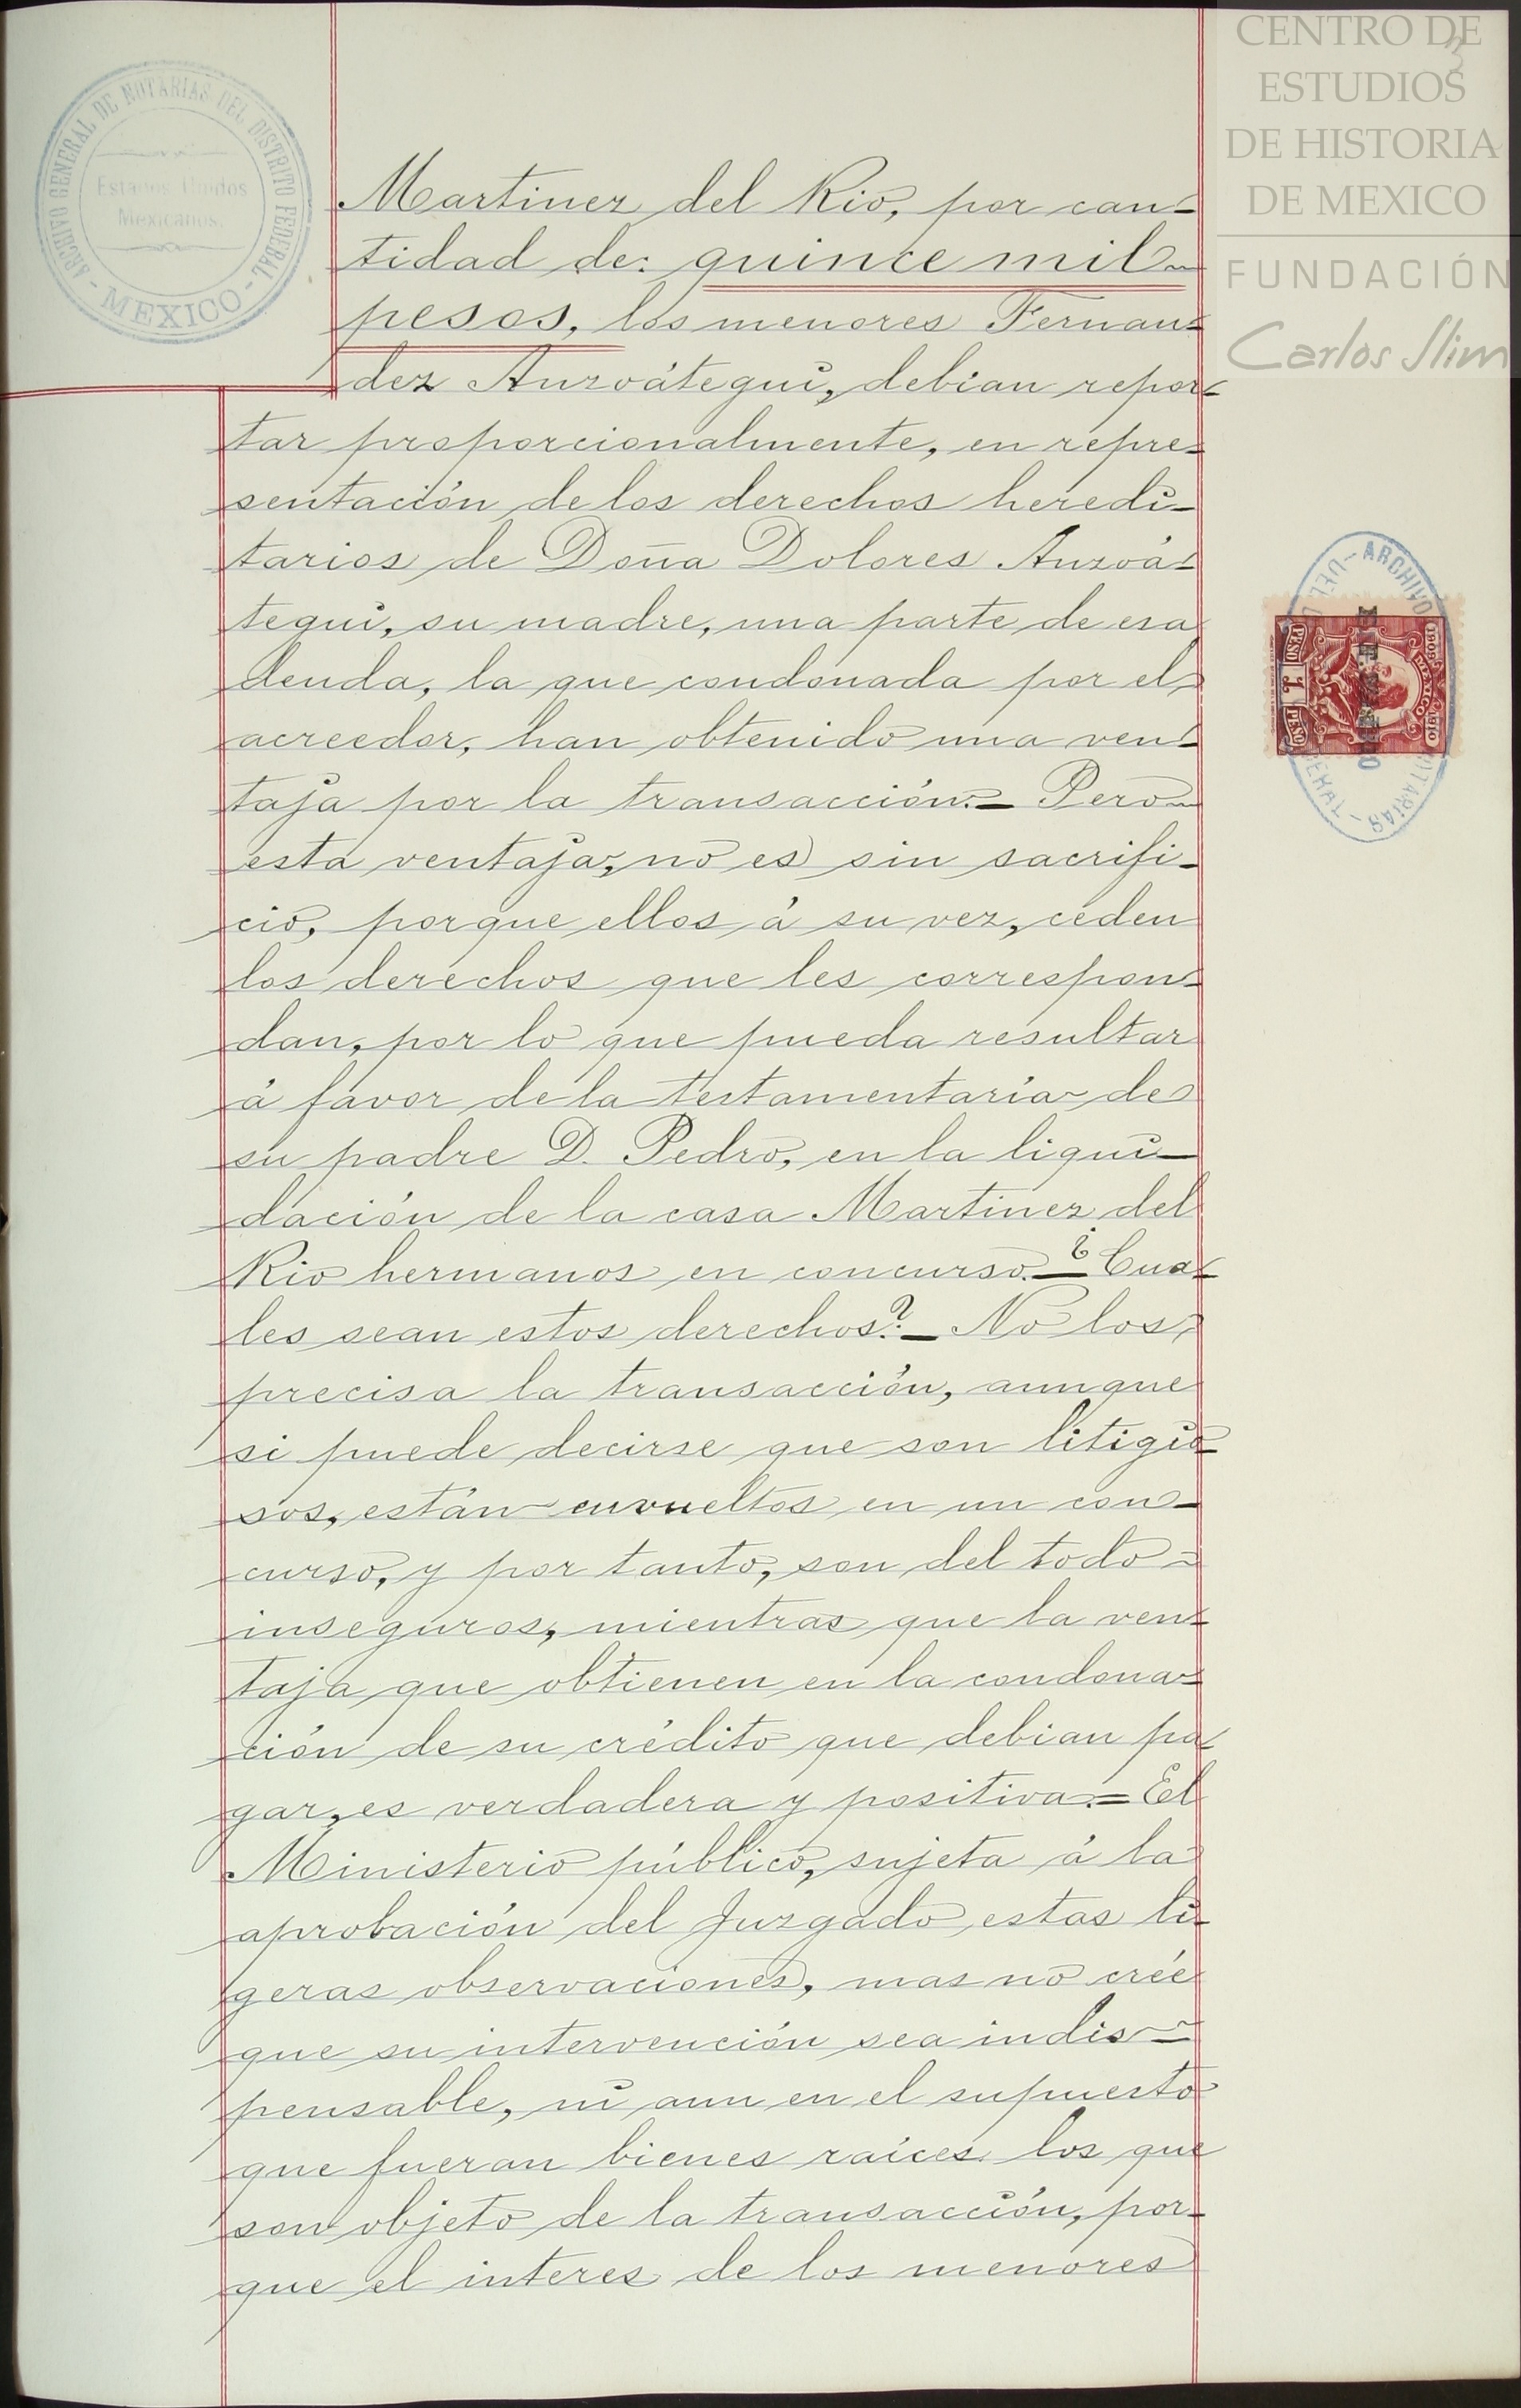 CENTRO DE
ESTUDIOS
DE HISTORIA
DE MEXICO
FUNDACIÓN
Carlos Slim
3
ARCHIVO GENERAL DE NOTARIAS DEL DISTRITO FEDERAL
Estados Unidos
Mexicanos.
- MEXICO -
Martinez del Rio, por can-
tidad de: quince mil
pesos, los menores Fernan-
dez Anzoátegui, debian repor-
tar proporcionalmente, en repre-
sentación de los derechos heredi-
tarios de Doña Dolores Anzoá-
tegui, su madre, una parte de esa
deuda, la que condonada por el
acreedor, han obtenido una ven-
taja por la transacción.- Pero
esta ventaja, no es sin sacrifi-
cio, porque ellos á su vez, ceden
los derechos que les correspon-
dan, por lo que pueda resultar
á favor de la testamentaría de
su padre D. Pedro, en la liqui-
dación de la casa Martinez del
Rio hermanos en concurso.- ¿Cua-
les sean estos derechos?- No los
precisa la transacción, aunque
si puede decirse que son litigio
sos, están envueltos en un con-
curso, y por tanto, son del todo
inseguros, mientras que la ven-
taja que obtienen en la condona-
ción de su crédito que debian pa-
gar, es verdadera y positiva.= El
Ministerio público, sujeta á la
aprobación del Juzgado estas li-
geras observaciones, mas no crée
que su intervención sea indis-
pensable, ni aun en el supuesto
que fueran bienes raíces los que
son objeto de la transacción, por-
que el interes de los menores
ARCHIVO
NOTARIAS
1909 1910
MEXICO
PESO 1 PESO